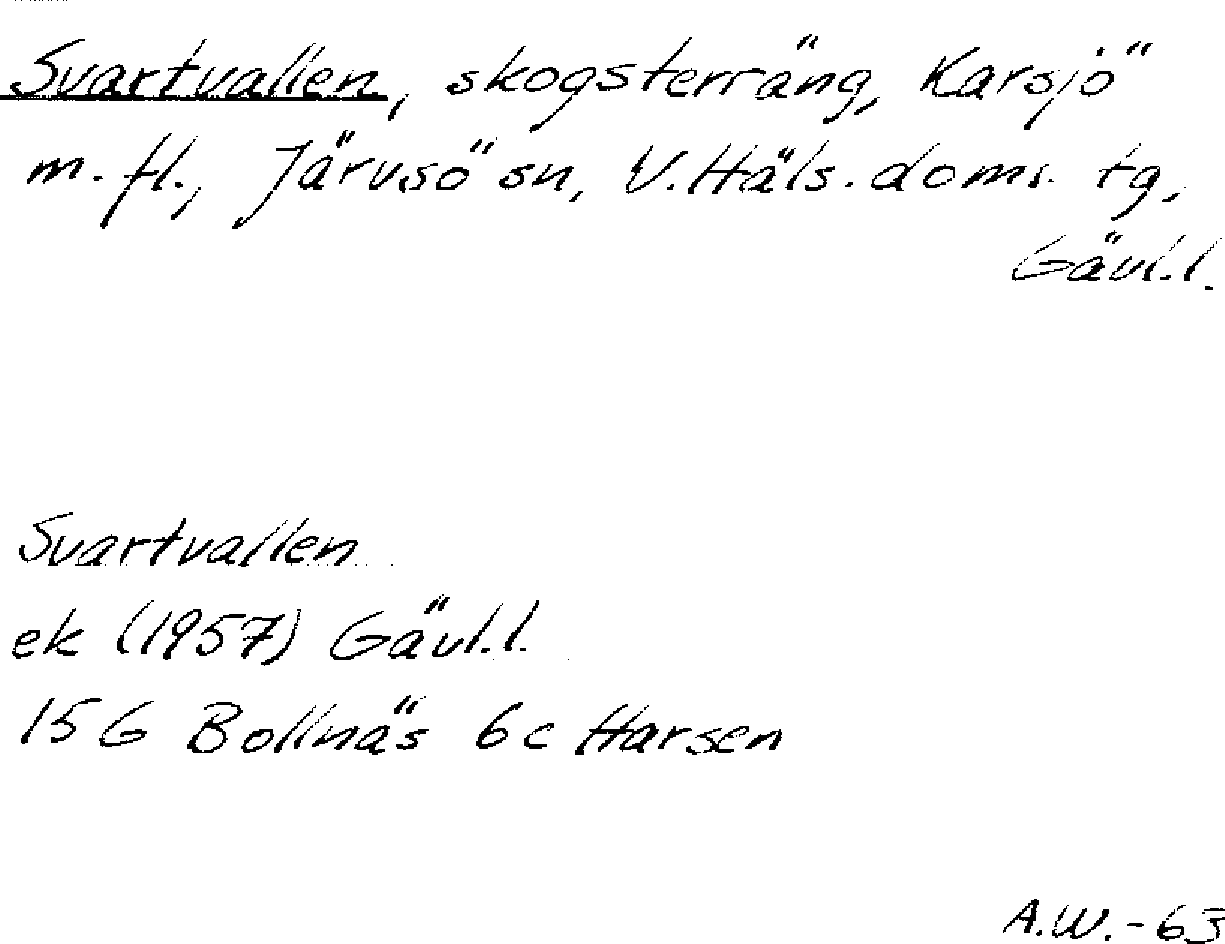 Svartvallen, skogsterräng, Karsjö
m. fl., Järvsö sn, V. Häls. doms. tg,
Gävl.l.
Svartvallen
ek (1957) Gävl.l.
15 G Bollnäs 6c Harsen
A.W.-63